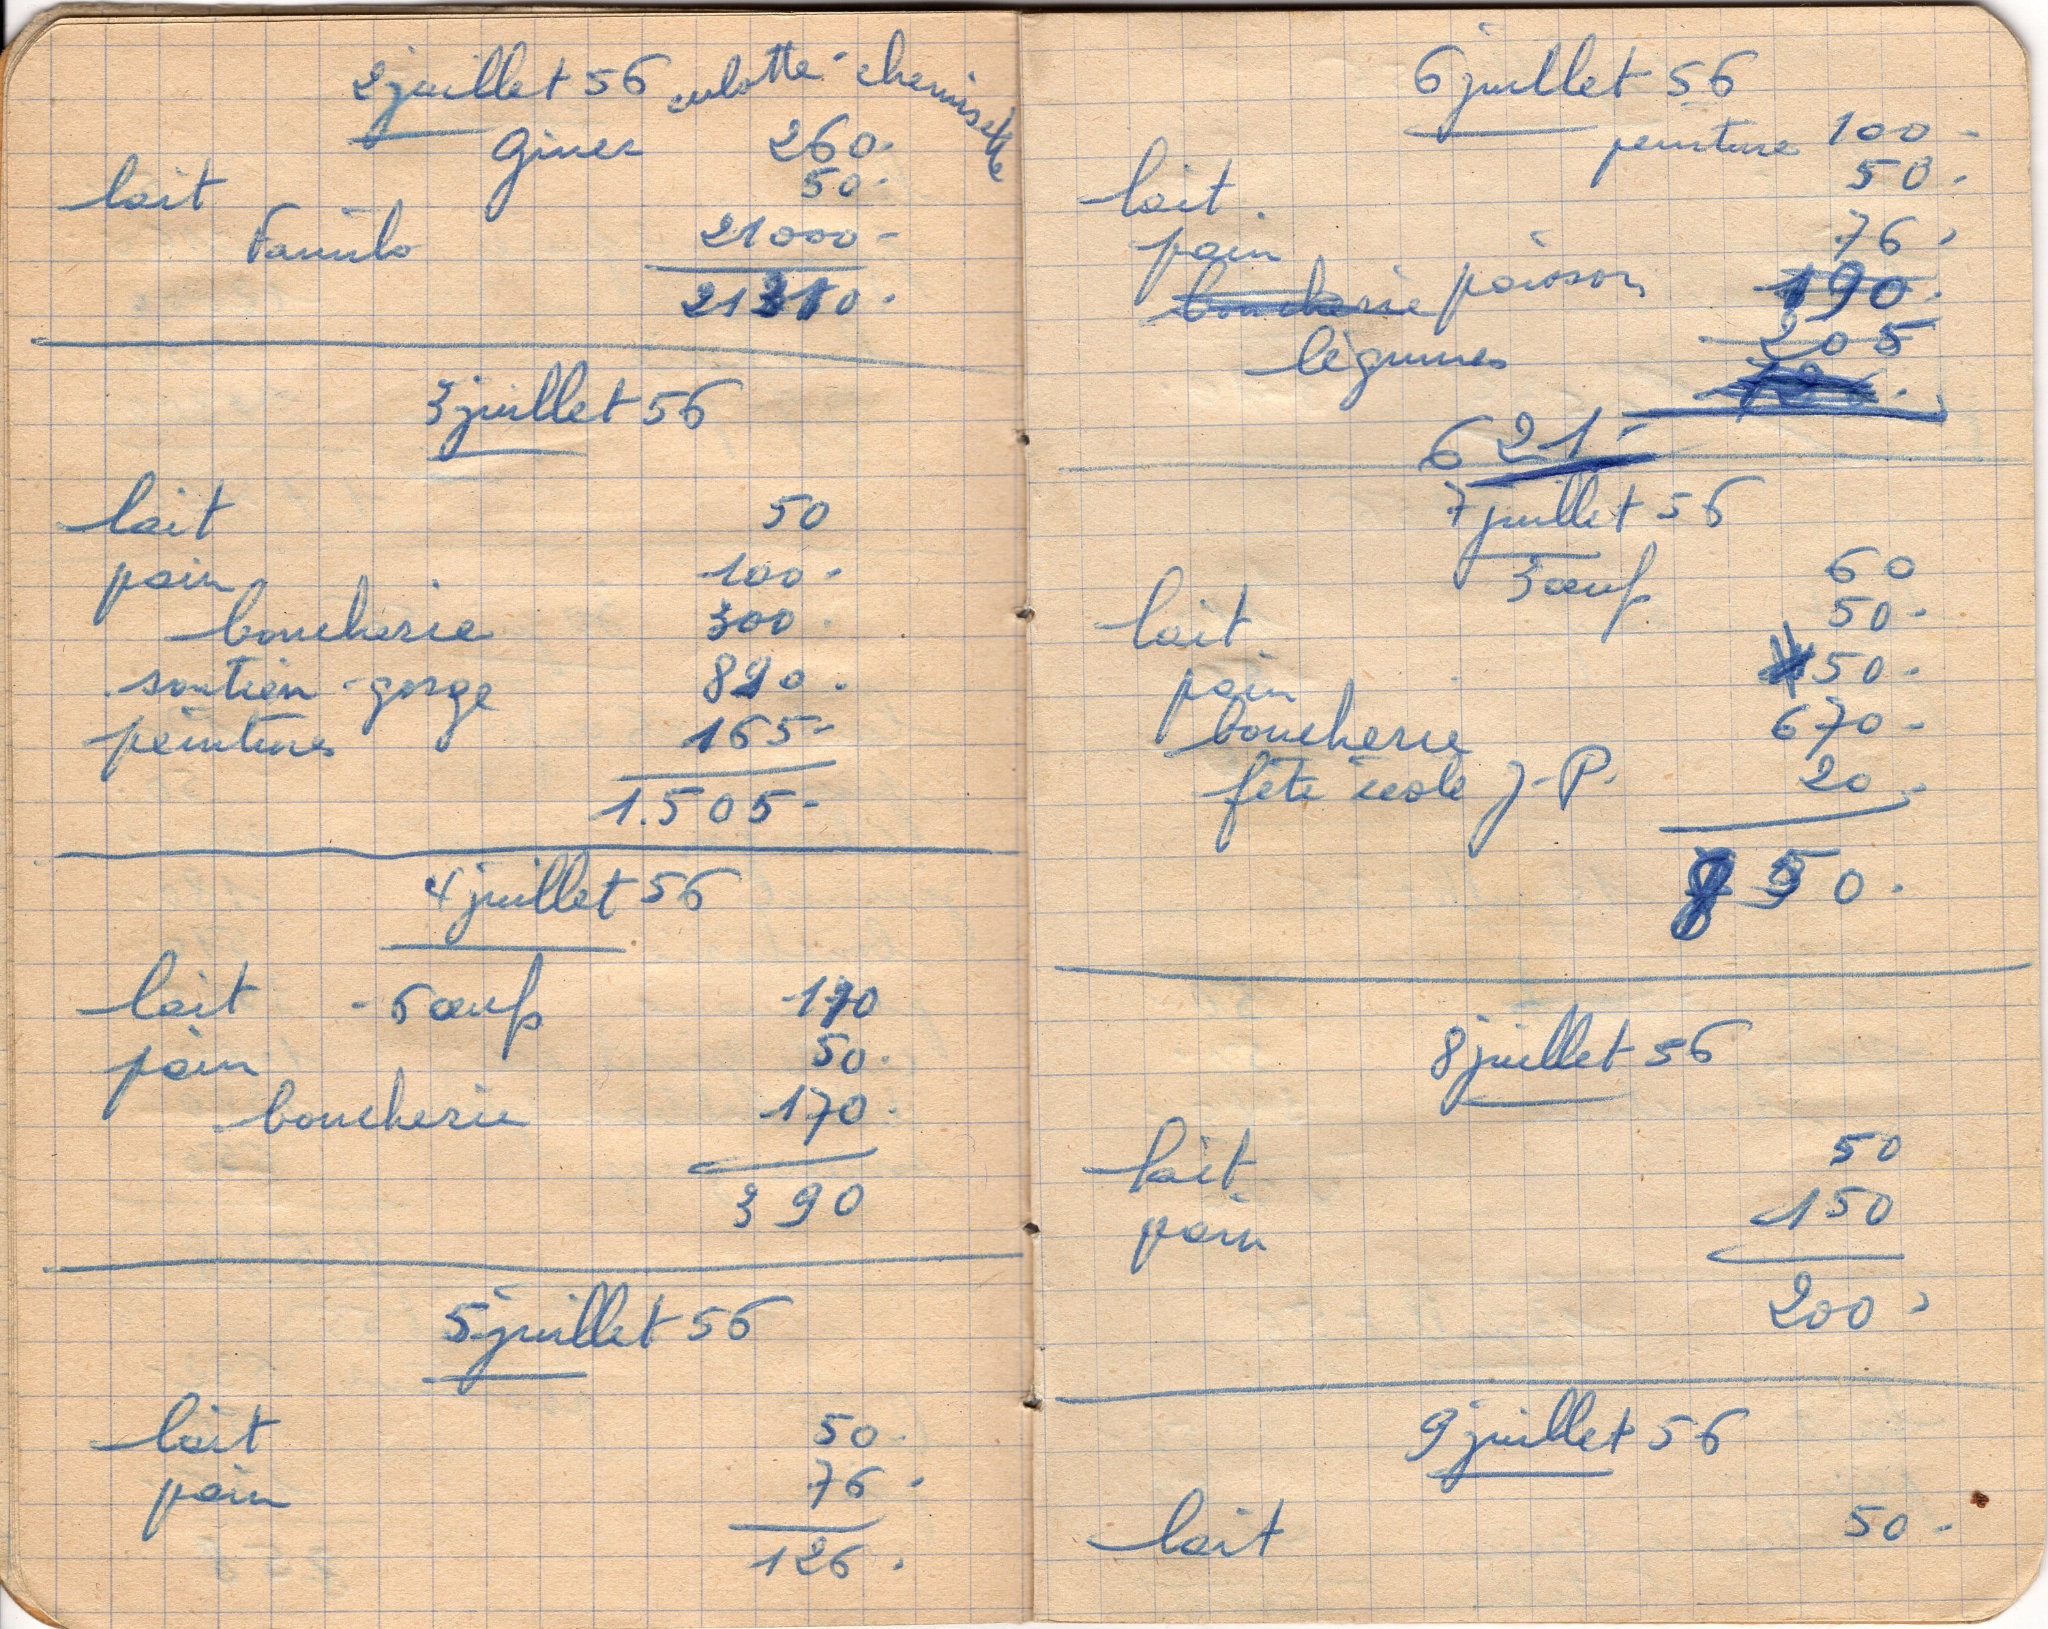 2 juillet 56 culotte - chemisette
Giner 260.
lait 50.
Familo 21000-
21310.
3 juillet 56
lait 50
pain 100.
boucherie 300.
soutien-gorge 890.
peintures 165-
1.505-
4 juillet 56
lait - 6 œufs 170
pain 50.
boucherie 170.
390
5 juillet 56
lait 50.
pain 76.
126.
6 juillet 56
peinture 100-
lait. 50.
pain 76.
boucherie poisson 190.
légumes 205
621-
7 juillet 56
3 œufs 60
lait. 50-
pain 50.
boucherie 670-
fête école J-P. 20.
850.
8 juillet 56
lait. 50
pain 150
200.
9 juillet 56
lait 50-